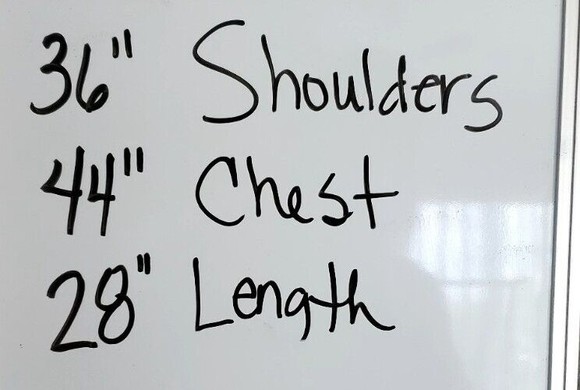 36" Shoulders
44" Chest
28" Length